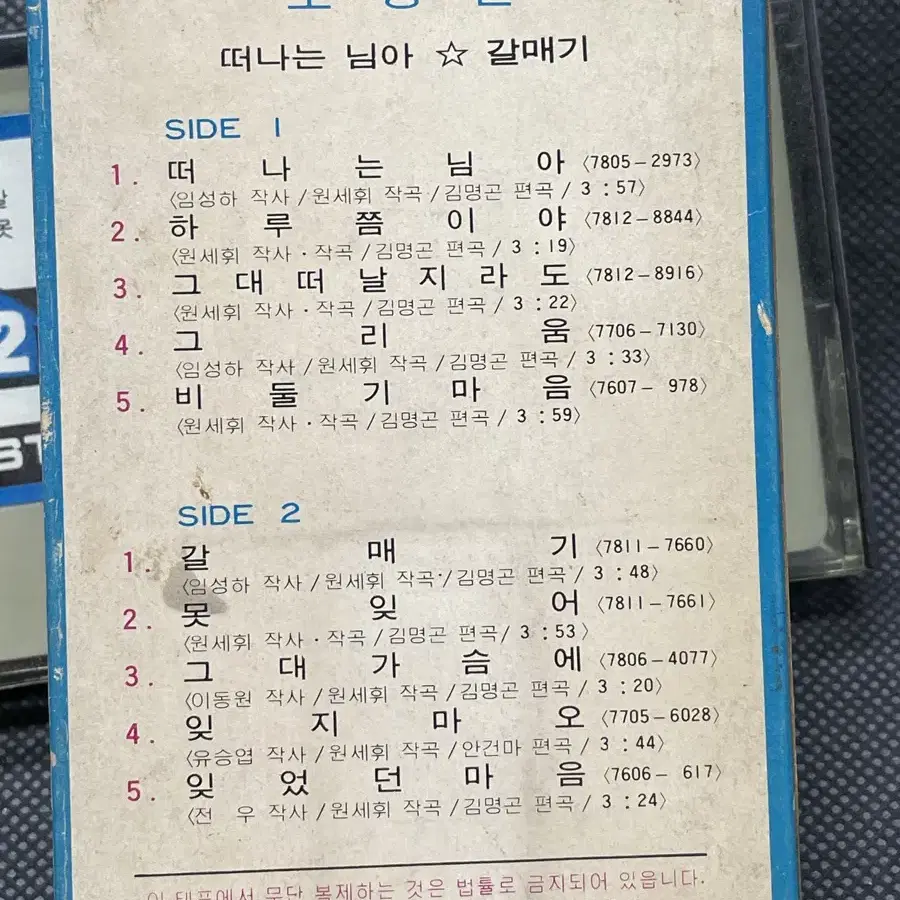 떠나는 님아 ☆ 갈매기
SIDE 1
1. 떠나는님아 〈7805-2973〉
〈임성하 작사/원세휘 작곡/김명곤 편곡/3:57〉
2. 하루쯤이야 〈7812-8844〉
〈원세휘 작사·작곡/김명곤 편곡/3:19〉
3. 그대떠날지라도 〈7812-8916〉
〈원세휘 작사·작곡/김명곤 편곡/3:22〉
4. 그리움 〈7706-7130〉
〈임성하 작사/원세휘 작곡/김명곤 편곡/3:33〉
5. 비둘기마음 〈7607-978〉
〈원세휘 작사·작곡/김명곤 편곡/3:59〉
SIDE 2
1. 갈매기 〈7811-7660〉
〈임성하 작사/원세휘 작곡/김명곤 편곡/3:48〉
2. 못잊어 〈7811-7661〉
〈원세휘 작사·작곡/김명곤 편곡/3:53〉
3. 그대가슴에 〈7806-4077〉
〈이동원 작사/원세휘 작곡/김명곤 편곡/3:20〉
4. 잊지마오 〈7705-6028〉
〈유승엽 작사/원세휘 작곡/안건마 편곡/3:44〉
5. 잊었던마음 〈7606-617〉
〈전 우 작사/원세휘 작곡/김명곤 편곡/3:24〉
이 테프에서 무단 복제하는 것은 법률로 금지되어 있읍니다.